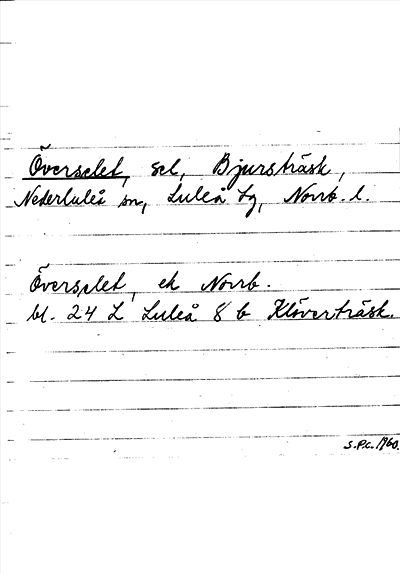 Överselet, sel, Bjursträsk,
Nederluleå sn, Luleå tg, Norrb. l.
Överselet, ek Norrb.
bl. 24 L Luleå 8 b Klöverträsk.
S.P.C. 1960.